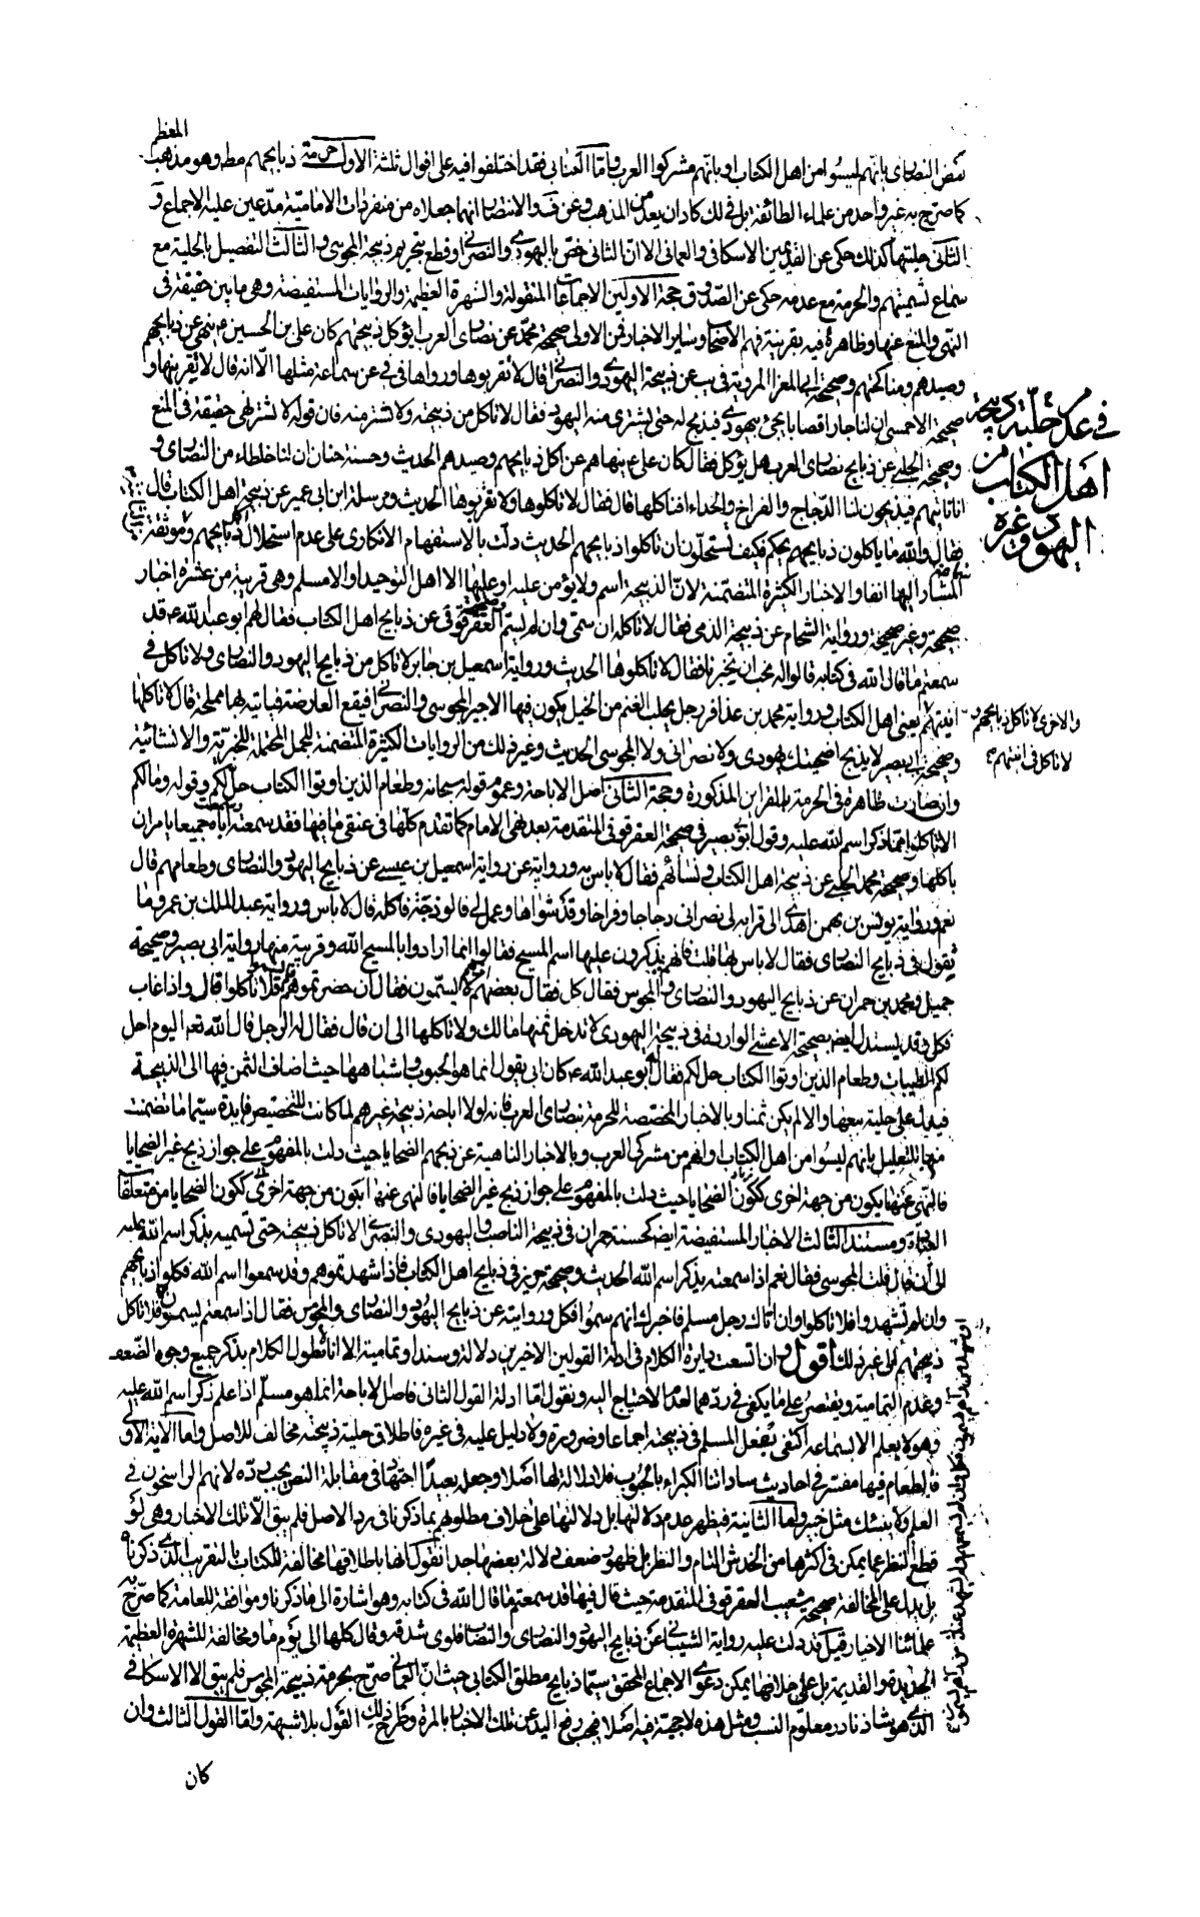 المعظم
بعض النصارى بانهم ليسوا من اهل الكتاب او بانهم مشركوا العرب واما الكتابى فقد اختلفوا فيه على اقوال ثلثة الاول حرمة ذبايحهم مط وهو مذهب
كما صرح به غير واحد من علماء الطائفة بل فى لك كاد ان يعد من المذهب وعن ف والانتصار انهما جعلاه من منفردات الامامية مدعين عليه الاجماع و
الثانى حليتها كذلك حكى عن القديمين الاسكافى والعمانى الا ان الثانى خص باليهودى والنصرانى وقطع بتحريم ذبيحة المجوسى والثالث التفصيل بالحلية مع
سماع تسميتهم والحرمة مع عدمه حكى عن الصدوق حجة الاولين الاجماعات المنقولة والشهرة العظيمة والروايات المستفيضة وهى ما بين حقيقة فى
النهى والمنع عنها وظاهرة فيه بقرينة فهم الاصحاب وساير الاخبار فمن الاولى صحيحة محمد عن نصارى العرب ايؤكل ذبيحتهم كان على بن الحسين ع ينهى عن ذبايحهم
وصيدهم ومناكحتهم وصحيحة ابى المغرا المروية فى يب عن ذبيحة اليهودى والنصرانى فقال لا تقربوها ورواها فى فى عن سماعة مثلها الا انه قال لا تقربنها و
صحيحة الاحمسى ان لنا جارا قصابا يجئ بيهودى فيذبح له حتى يشترى منه اليهود فقال لا تاكل من ذبيحته ولا تشتر منه فان قوله لا تشتر نهى حقيقة فى المنع
وصحيحة الحلبى عن ذبايح نصارى العرب هل يؤكل فقال كان على ع ينهاهم عن اكل ذبايحهم وصيدهم الحديث وحسنة حنان ان لنا خلطاء من النصارى و
انا ناتيهم فيذبحون لنا الدجاج والفراخ والجداء افناكلها قال فقال لا تاكلوها ولا تقربوها الحديث ومرسلة ابن ابى عمير عن ذبيحة اهل الكتاب قال
فقال والله ما ياكلون ذبايحهم بحكم فكيف تستحلون ان تاكلوا ذبايحهم الحديث دلت بالاستفهام الانكارى على عدم استحلال ذبايحهم وموثقة
المشار اليها انفا والاخبار الكثيرة المتضمنة لان الذبيحة اسم ولا يؤمن عليه او عليها الا اهل التوحيد او الا مسلم وهى قريبة من عشرة اخبار
صحيحة وغير صحيحة ورواية الشحام عن ذبيحة الذمى فقال لا تاكله ان سمى وان لم يسم وصحيحة العقرقوفى عن ذبايح اهل الكتاب فقال لهم ابو عبدالله ع قد
سمعتم ما قال الله فى كتابه قالوا له نحب ان تخبرنا فقال لا تاكلوها الحديث ورواية اسمعيل بن جابر لا تاكل من ذبايح اليهود والنصارى ولا تاكل فى
انيتهم يعنى اهل الكتاب ورواية محمد بن عذافر رجل يجلب الغنم من الجبل يكون فيها الاجير المجوسى والنصرانى فيقع العارضة فياتيه بها مملحة قال لا تاكلها
وصحيحة ابى بصير لا يذبح اضحيتك يهودى ولا نصرانى ولا المجوسى الحديث وغير ذلك من الروايات الكثيرة المتضمنة للجمل المحتملة للخبرية والانشائية
وان صارت ظاهرة فى الحرمة بالقراين المذكورة وحجة الثانى اصل الاباحة وعموم قوله سبحانه وطعام الذين اوتوا الكتاب حل لكم وقوله وما لكم
الا تاكلوا مما ذكر اسم الله عليه وقول ابى بصير فى صحيحة العقرقوفى المتقدمة بعد نهى الامام كما تقدم كلها فى عنقى ما فيها فقد سمعته وسمعت اباه جميعا يامران
باكلها وصحيحة محمد الحلبى عن ذبيحة اهل الكتاب ونسائهم فقال لا باس به ورواية عن رواية اسمعيل بن عيسى عن ذبايح اليهود والنصارى وطعامهم قال
نعم ورواية يونس بن بهمن اهدى الى قرابة لى نصرانى دجاجا وفراخا وقد شواها وعمل لى فالوذجة فاكله قال لا باس ورواية عبدالملك بن عمرو ما
تقول فى ذبايح النصارى فقال لا باس بها قلت فانهم يذكرون عليها اسم المسيح فقال انما ارادوا بالمسيح الله وقريبة منها رواية ابى بصير وصحيحة
جميل ومحمد بن حمران عن ذبايح اليهود والنصارى والمجوس فقال كل فقال بعضهم انهم لا يسمون فقال ان حضرتموهم فلم يسموا فلا تاكلوا قال واذا غاب
فكل وقد يستدل ايضا بصحيحة الاعشى الواردة فى ذبيحة اليهودى لا تدخل ثمنها مالك ولا تاكلها الى ان قال فقال له الرجل قال الله تعم اليوم احل
لكم الطيبات وطعام الذين اوتوا الكتاب حل لكم فقال ابو عبدالله ع كان ابى يقول انما هو الحبوب واشباهها حيث اضاف الثمن فيها الى الذبيحة
فيدل على حلية بيعها والا لم يكن ثمنا وبالاخبار المختصة للحرمة بنصارى العرب فانه لولا اباحة ذبيحة غيرهم لما كانت للتخصيص فايدة سيما ما تضمنت
منها للتعليل بانهم ليسوا من اهل الكتاب او انهم من مشركى العرب وبالاخبار الناهية عن ذبحهم الضحايا حيث دلت بالمفهوم على جواز ذبح غير الضحايا
فالنهى عنها يكون من جهة اخرى ككون الضحايا حيث دلت بالمفهوم على جواز ذبح غير الضحايا فالنهى عنها يكون من جهة اخرى ككون الضحايا من متعلقات
العبادة ومستند الثالث الاخبار المستفيضة ايضا كحسنة حمران فى ذبيحة الناصب واليهودى والنصرانى لا تاكل ذبيحته حتى تسمعه يذكر اسم الله عليه
الى ان قال قلت المجوسى فقال نعم اذا سمعته يذكر اسم الله الحديث وصحيحة حريز فى ذبايح اهل الكتاب فاذا شهدتموهم وقد سمعوا اسم الله فكلوا ذبايحهم
وان لم تشهدوا فلا تاكلوا وان اتاك رجل مسلم فاخبرك انهم سموا فكل ورواية عن ذبايح اليهود والنصارى والمجوس فقال اذا سمعتم يسمون فلا تاكل
ذبيحتهم الى غير ذلك اقول وان اتسعت دايرة الكلام فى ادلة القولين الاخيرين دلالة وسندا وتمامية الا انا لا نطول الكلام بذكر جميع وجوه الضعف
وعدم التمامية ونقتصر على ما يكفى فى ردهما لعدم الاحتياج اليه ونقول اما ادلة القول الثانى فاصل الاباحة انما هو مسلم اذا علم ذكر اسم الله عليه
وهو لا يعلم الا بسماعه اكتفى بفعل المسلم فى ذبيحته اجماعا وضرورة ولا دليل عليه فى غيره فاطلاق حلية ذبيحته مخالف للاصل واما الاية الاولى
فالطعام فيها مفسر فى احاديث ساداتنا الكبراء بالحبوب فلا دلالة لها اصلا وجعله بعيدا اجتهاد فى مقابلة النص يجب رده لانهم الراسخون فى
العلم ولا ينبئك مثل خبير واما الثانية فيظهر عدم دلالتها بل دلالتها على خلاف مطلوبهم بما ذكرنا فى رد الاصل فلم يبق الا تلك الاخبار وهى لو
قطع النظر عما يمكن فى اكثرها من الخدش التام والنظر بل ظهور ضعف دلالة بعضها جدا نقول انها باطلاقها مخالفة للكتاب بالتقريب الذى ذكرناه
بل يدل على المخالفة صحيحة شعيب العقرقوفى المتقدمة حيث قال فيها قد سمعتم ما قال الله فى كتابه وهو اشارة الى ما ذكرنا وموافقة للعامة كما صرح به
علمائنا الاخيار قيل وقد دلت عليه رواية الشيبانى عن ذبايح اليهود والنصارى والنصاب فلوى شدقه وقال كلها الى يوم ما ومخالفة للشهرة العظيمة
الجديدة والقديمة بل على خلافها يمكن دعوى الاجماع المحقق سيما ذبايح مطلق الكتابى حيث ان العمانى صرح بحرمة ذبيحة المجوس فلم يبق الا الاسكافى
الذى هو شاذ نادر معلوم النسب ومثل هذه لا حجية فيه اصلا فيجب رفع اليد عن تلك الاخبار بالمرة وطرح ذلك القول بلا شبهة واما القول الثالث وان
كان
فى عدم حلية ذبيحة
اهل الكتاب من
اليهود وغيره
والاخرى لا تاكل ذبايحهم و
لا تاكل فى انيتهم